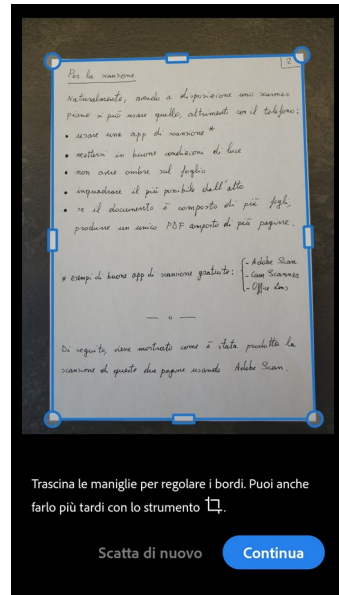 2
Per la scansione
Naturalmente, avendo a disposizione uno scanner
piano si può usare quello, altrimenti con il telefono:
• usare una app di scansione *
• mettersi in buone condizioni di luce
• non avere ombre sul foglio
• inquadrare il più possibile dall'alto
• se il documento è composto di più fogli,
produrre un unico PDF composto di più pagine.
* esempi di buone app di scansione gratuite: { - Adobe Scan
- Cam Scanner
- Office Lens
— o —
Di seguito, viene mostrato come è stata prodotta la
scansione di queste due pagine usando Adobe Scan.
Trascina le maniglie per regolare i bordi. Puoi anche
farlo più tardi con lo strumento .
Scatta di nuovo
Continua